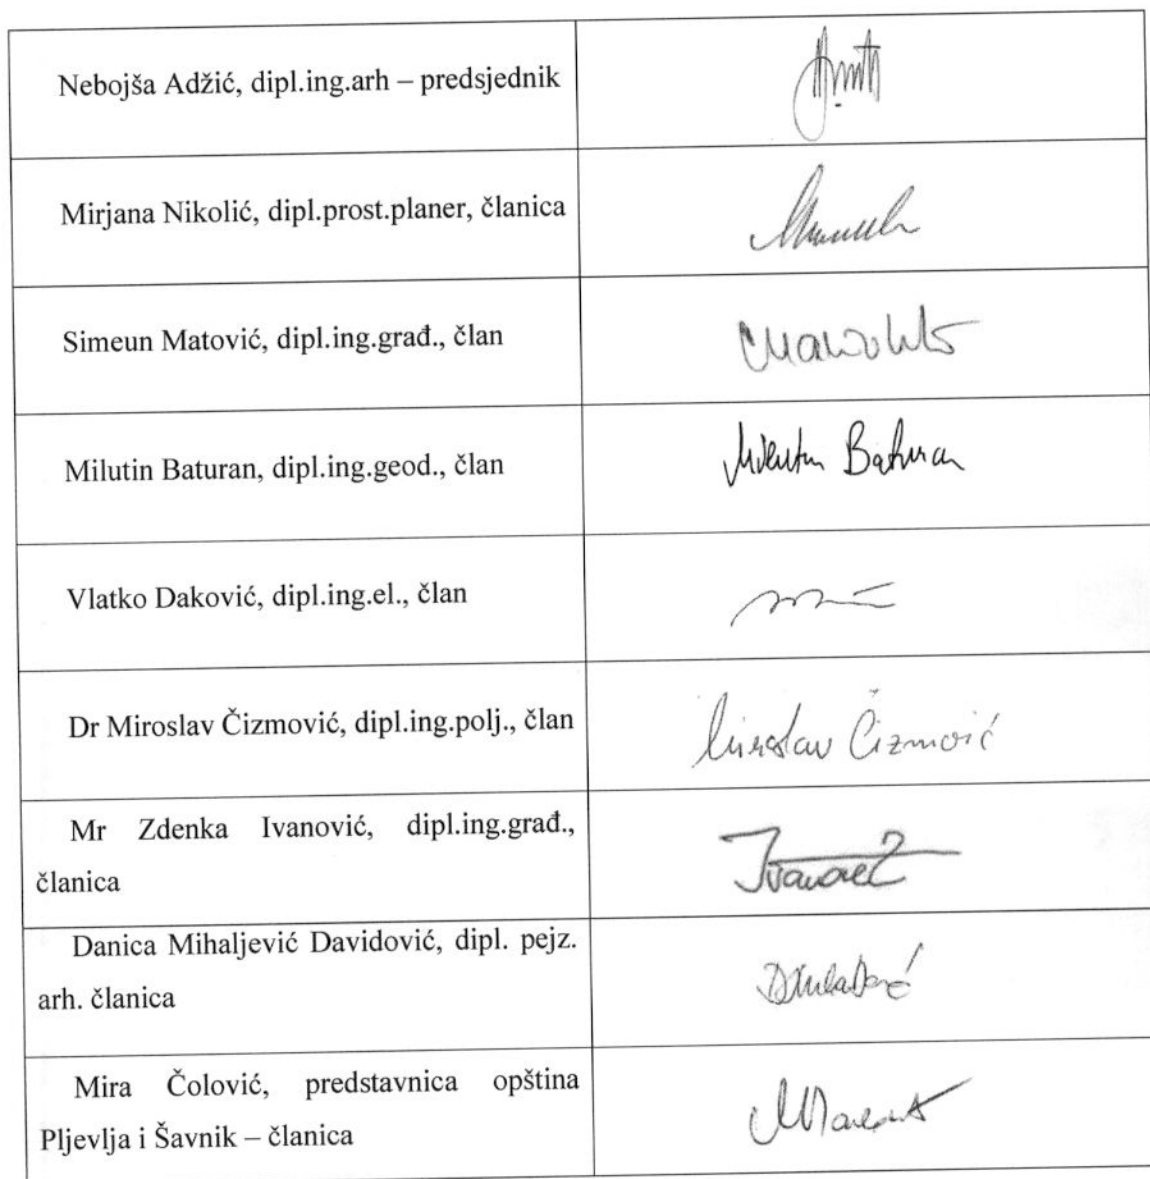 Nebojša Adžić, dipl.ing.arh – predsjednik
Mirjana Nikolić, dipl.prost.planer, članica
Simeun Matović, dipl.ing.građ., član
Milutin Baturan, dipl.ing.geod., član
Milutin Baturan
Vlatko Daković, dipl.ing.el., član
Dr Miroslav Čizmović, dipl.ing.polj., član
Miroslav Čizmović
Mr Zdenka Ivanović, dipl.ing.građ.,
članica
Danica Mihaljević Davidović, dipl. pejz.
arh. članica
Mira Čolović, predstavnica opština
Pljevlja i Šavnik – članica